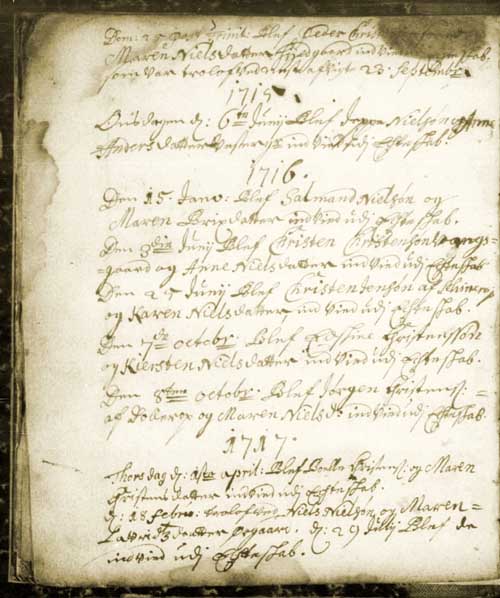 Dom: 25 post Trinit: blef Peder
Maren Nielsdatter indviet
som var trolofved 23 Septembr
1715
Onsdagen d: 6te Junij blef Jeppe Nielsøn og
Andersdatter indviet udj Echteskab.
1716.
Den 15 Janv: blef Salmand Nielsøn og
Maren Brixdatter indvied udj Echteskab.
Den 3die Junij blef Christen Christensøn
=gaard og Anne Nielsdatter indvied udj Echteskab
Den 25 Junij blef Christen af
og Karen Nielsdatter indvied udj Echteskab.
Den octobr: blef Christenssøn
og Kiersten Nielsdatter indvied udj Echteskab.
Den 8tende octobr. blef Jørgen Christens: =
af Dollerop og Maren Nielsd: indvied udj Echteskab.
1717.
Thorsdag d: 1ste april: blef Pelle Christens: og Maren
Christensdatter indvied udj Echteskab.
d: 18 febru: trolofved Niels Nielsøn og Maren =
Lavridsdaatter d: 29 Julij blef de
indvied udj Echteskab.